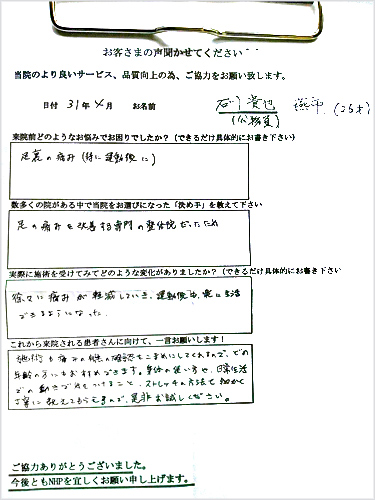 お客さまの声聞かせてください
当院のより良いサービス、品質向上の為、ご協力をお願い致します。
日付 31年 4月 お名前 石川 貴也
(公務員) (25才)
来院前どのようなお悩みでお困りでしたか?(できるだけ具体的にお書き下さい)
足裏の痛み(特に運動後に)
数多くの院がある中で当院をお選びになった「決め手」を教えて下さい
足の痛みを改善する専門の整体院だったため
実際に施術を受けてみてどのような変化がありましたか?(できるだけ具体的にお書き下さい
徐々に痛みが軽減していき、運動後も楽に生活
できるようになった。
これから来院される患者さんに向けて、一言お願いします!
施術も痛みの の確認もこまめにしてくれるので、どの
年齢の方にもおすすめできます。身体の使い方や、日常生活
での動きで気をつけること、ストレッチの方法も細かく
丁寧に教えてもらえるので、是非お試しください。
ご協力ありがとうございました。
今後ともNHPを宜しくお願い申し上げます。